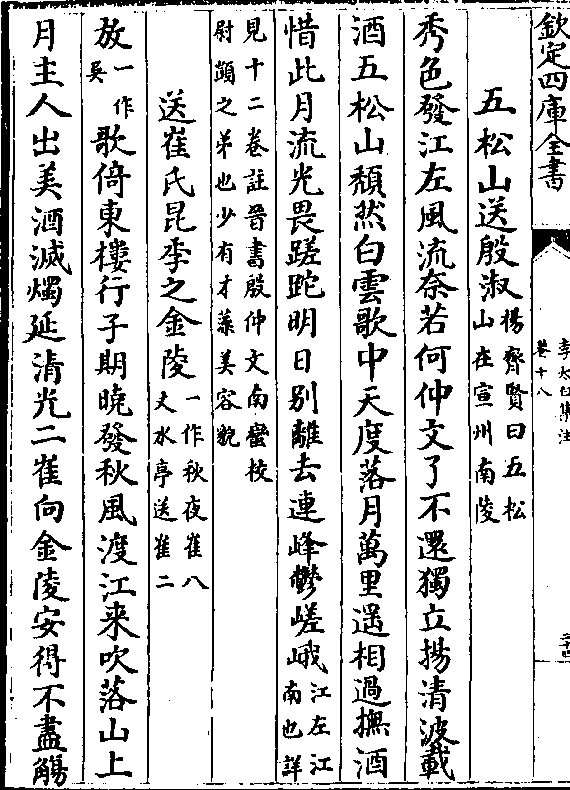 欽定四庫全書
李太白集注
卷十八
二十四
五松山送殷淑楊齊賢曰五松山在宣州南陵
秀色發江左風流奈若何仲文了不還獨立揚清波載
酒五松山頹然白雲歌中天度落月萬里遥相過撫酒
惜此月流光畏蹉跎明日别離去連峰鬱嵯峨江左江南也詳
見十二卷註晉書殷仲文南蠻校尉顗之弟也少有才藻美容貌
送崔氏昆季之金陵一作秋夜崔八丈水亭送崔二
放一作吳歌倚東樓行子期曉發秋風渡江来吹落山上
月主人出美酒滅燭延清光二崔向金陵安得不盡觴